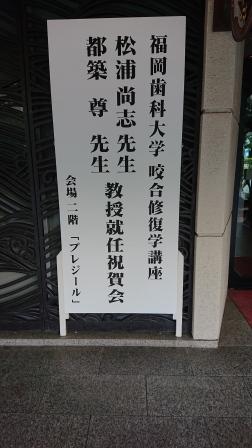 福岡歯科大学 咬合修復学講座
松浦尚志 先生
都築 尊 先生
教授就任祝賀会
会場 二階 「プレジール」